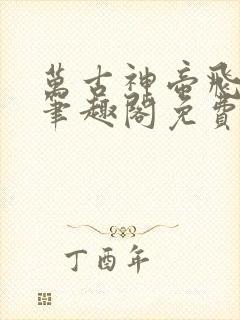 萬古神帝飛
筆趣閣免費
丁酉年